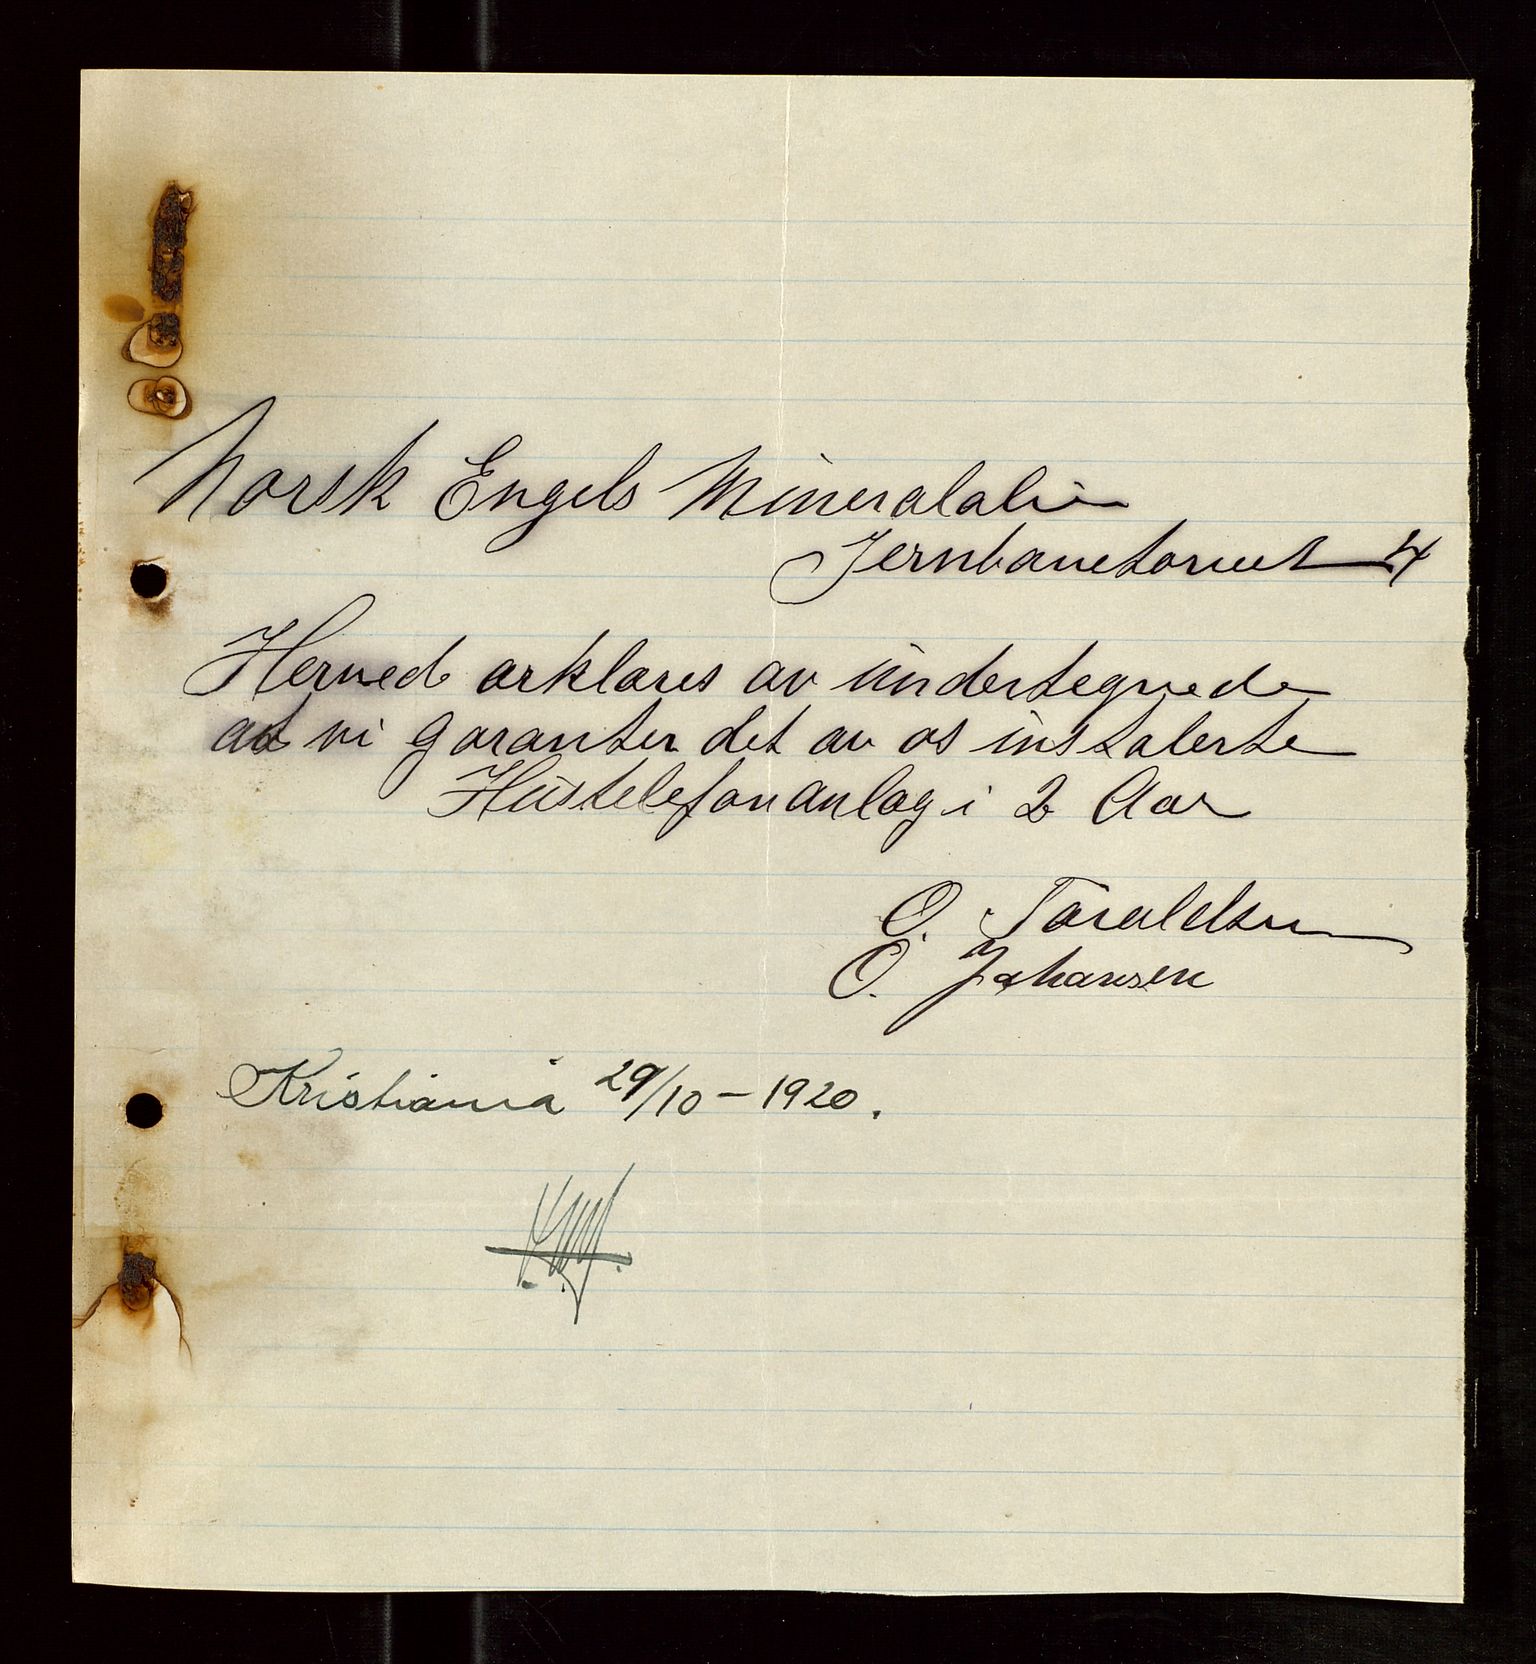 Norsk Engels Mineralali
Jernbanetorvet 4
Herved erklares av undertegnede
at vi garanter det av os instalerte
Hustelefonanlag i 2 Aar
O. Toraldsen
O. Johansen
Kristiania 29/10-1920.